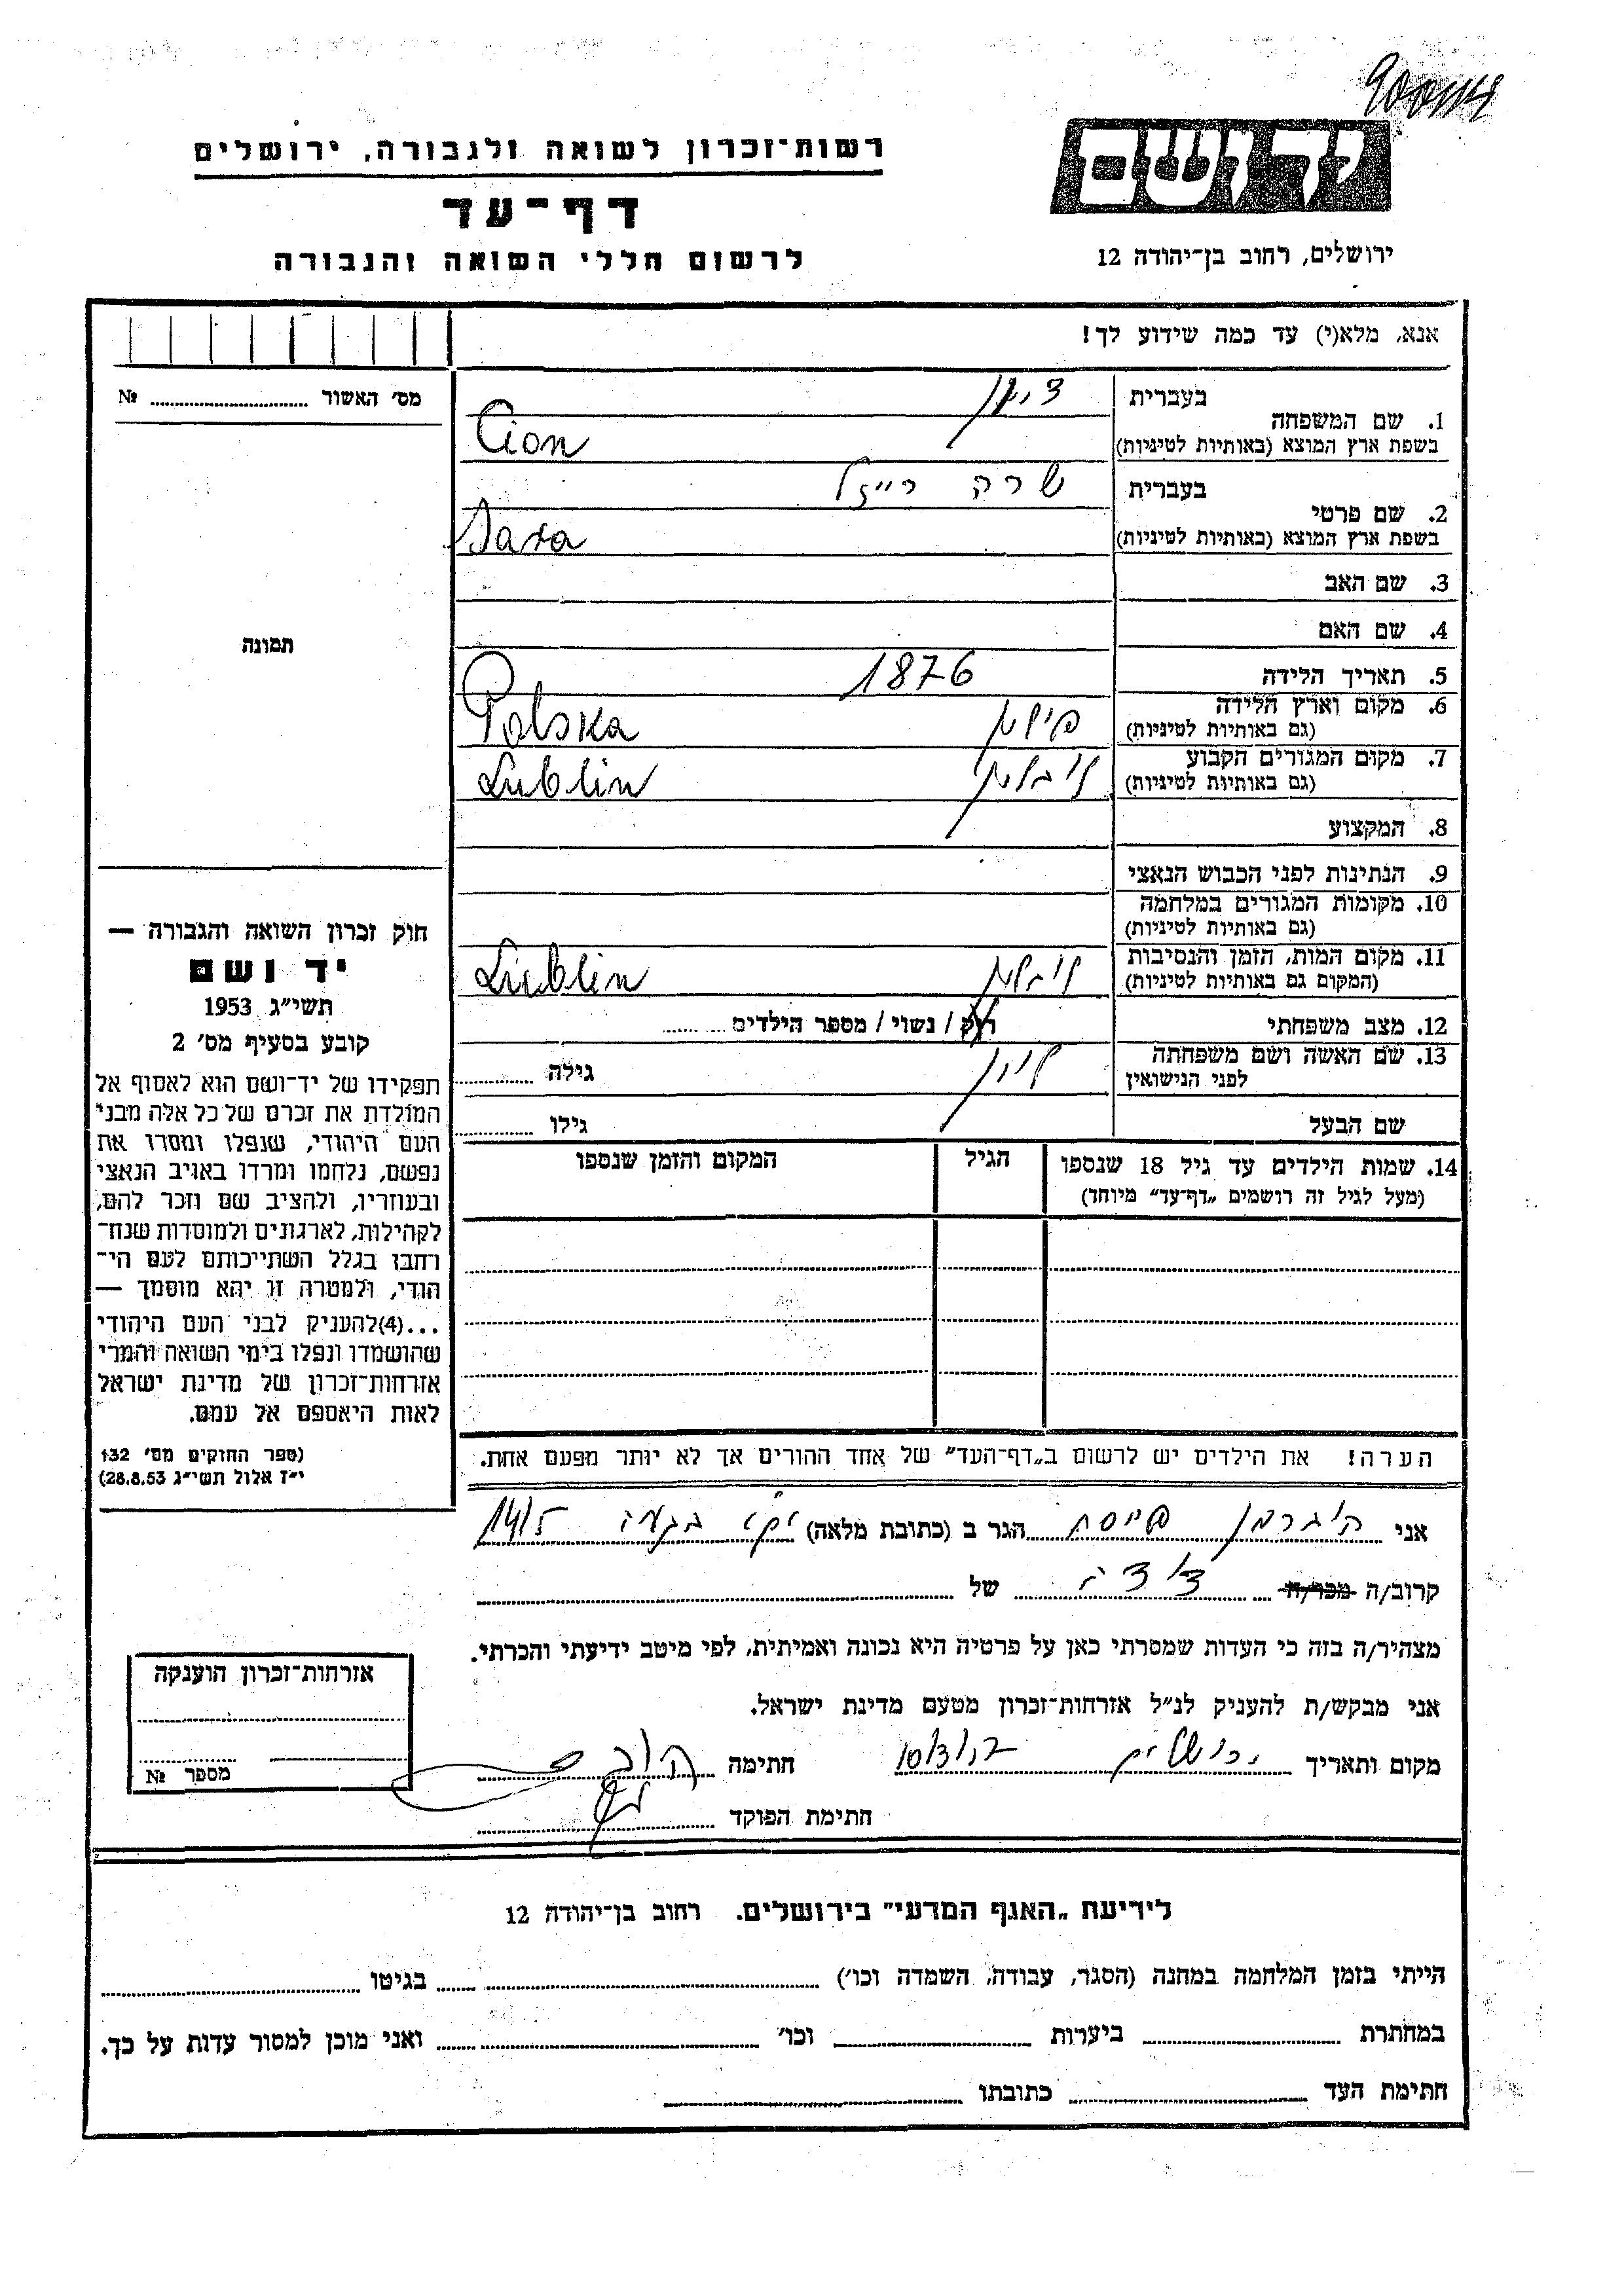 יד ושם
ירושלים, רחוב בן־יהודה 12
רשות־זכרון לשואה ולגבורה, ירושלים
דף־עד
לרשום חללי השואה והגבורה
אנא, מלא(י) עד כמה שידוע לך!
מס׳ האשור № 
תמונה
בעברית ציון
1. שם המשפחה
בשפת ארץ המוצא (באותיות לטיניות) Cion
בעברית שרה רייזל
2. שם פרטי
בשפת ארץ המוצא (באותיות לטיניות) Sara
3. שם האב
4. שם האם
5. תאריך הלידה 1876
6. מקום וארץ הלידה פולין Polska
(גם באותיות לטיניות)
7. מקום המגורים הקבוע לובלין Lublin
(גם באותיות לטיניות)
8. המקצוע
9. הנתינות לפני הכבוש הנאצי
10. מקומות המגורים במלחמה
(גם באותיות לטיניות)
11. מקום המות, הזמן והנסיבות לובלין Lublin
(המקום גם באותיות לטיניות)
12. מצב משפחתי רווק / נשוי / מספר הילדים
13. שם האשה ושם משפחתה
לפני הנישואין גילה
שם הבעל גילו
14. שמות הילדים עד גיל 18 שנספו הגיל המקום והזמן שנספו
(מעל לגיל זה רושמים „דף־עד” מיוחד)
הערה! את הילדים יש לרשום ב„דף־העד” של אחד ההורים אך לא יותר מפעם אחת.
חוק זכרון השואה והגבורה —
יד ושם
תשי״ג 1953
קובע בסעיף מס׳ 2
תפקידו של יד־ושם הוא לאסוף אל
המולדת את זכרם של כל אלה מבני
העם היהודי, שנפלו ומסרו את
נפשם, נלחמו ומרדו באויב הנאצי
ובעוזריו, ולהציב שם וזכר להם,
לקהילות, לארגונים ולמוסדות שנח־
רבו בגלל השתייכותם לעם הי־
הודי, ולמטרה זו יהא מוסמך —
...(4)להעניק לבני העם היהודי
שהושמדו ונפלו בימי השואה והמרי
אזרחות־זכרון של מדינת ישראל
לאות היאספם אל עמם.
(ספר החוקים מס׳ 132
י״ז אלול תשי״ג 28.8.53)
אני הוברמן הגר ב (כתובת מלאה) 14/5
קרוב/ה מכר/ה של
מצהיר/ה בזה כי העדות שמסרתי כאן על פרטיה היא נכונה ואמיתית, לפי מיטב ידיעתי והכרתי.
אני מבקש/ת להעניק לנ״ל אזרחות־זכרון מטעם מדינת ישראל.
מקום ותאריך ירושלים חתימה
חתימת הפוקד
אזרחות־זכרון הוענקה
מספר №
לידיעת „האגף המדעי” בירושלים. רחוב בן־יהודה 12
הייתי בזמן המלחמה במחנה (הסגר, עבודה, השמדה וכו׳) בגיטו
במחתרת ביערות וכו׳ ואני מוכן למסור עדות על כך.
חתימת העד כתובתו